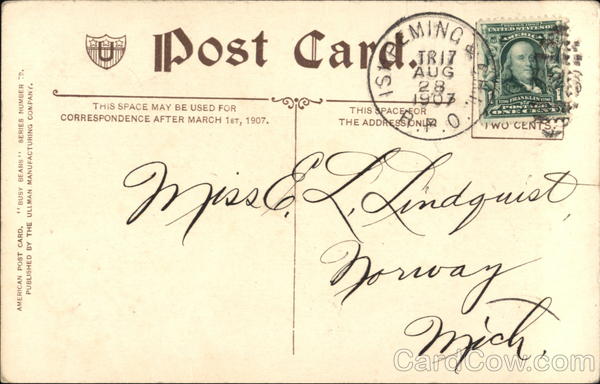 U
Post Card.
THIS SPACE MAY BE USED FOR
CORRESPONDENCE AFTER MARCH 1ST, 1907.
THIS SPACE FOR
THE ADDRESS ONLY
TWO CENTS
TR 17
AUG
28
1907
R.P.O.
POSTAGE
ONE CENT
Miss E. L. Lindquist,
Norway
Mich.
AMERICAN POST CARD. "BUSY BEARS" SERIES NUMBER
PUBLISHED BY THE ULLMAN MANUFACTURING COMPANY.
CardCow.com